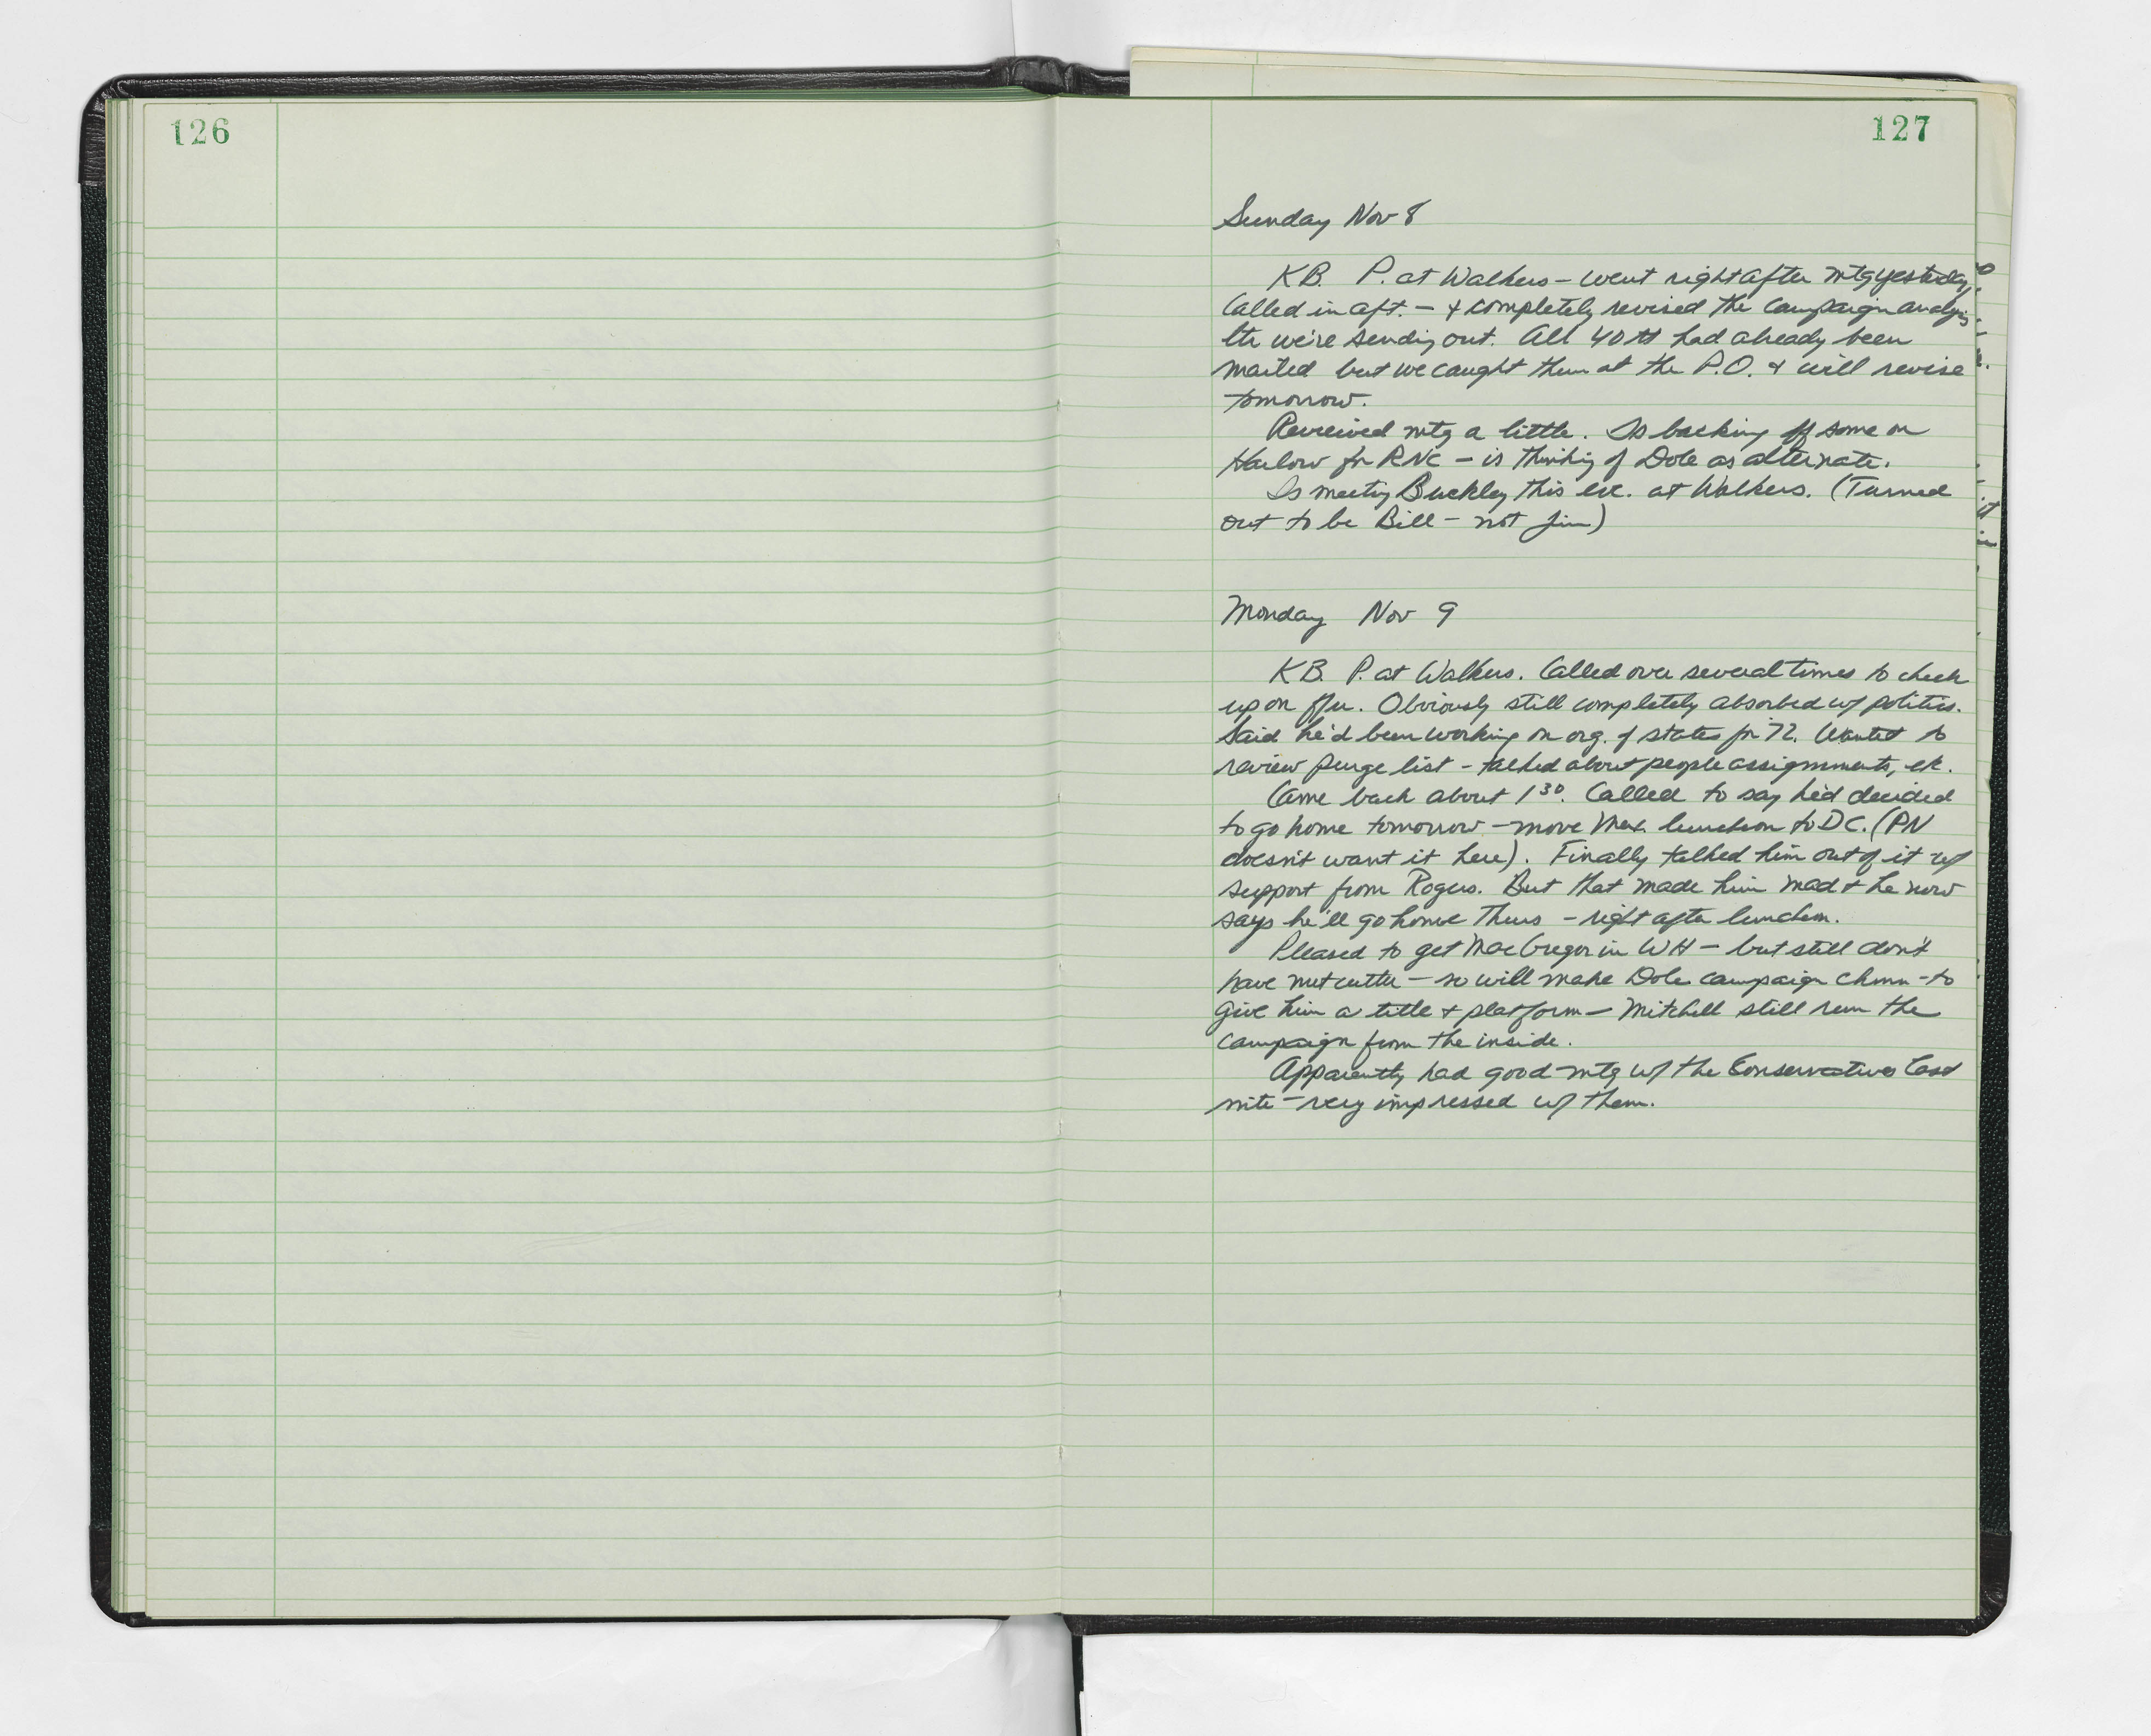 126
127
Sunday Nov 8
KB. P. at Walkers – went right after mtg yesterday.
Called in aft. – & completely revised the campaign analysis
ltr we're sending out. All 40 M had already been
mailed but we caught them at the P.O. & will revise
tomorrow.
Reviewed mtg a little. Is backing off some on
Harlow for RNC – is thinking of Dole as alternate.
Is meeting Buckley this eve. at Walkers. (Turned
out to be Bill – not Jim)
Monday Nov 9
KB. P. at Walkers. Called over several times to check
up on f/u. Obviously still completely absorbed w/ politics.
Said he'd been working on org. of states for 72. Wanted to
review purge list – talked about people assignments, etc.
Came back about 1 30. Called to say he'd decided
to go home tomorrow – move Mex. luncheon to DC. (PN
doesn't want it here). Finally talked him out of it w/
support from Rogers. But that made him mad & he now
says he'll go home Thurs – right after luncheon.
Pleased to get MacGregor in WH – but still don't
have nutcutter – so will make Dole campaign chmn – to
give him a title & platform – Mitchell still run the
campaign from the inside.
Apparently had good mtg w/ the Conservatives last
nite – very impressed w/ them.